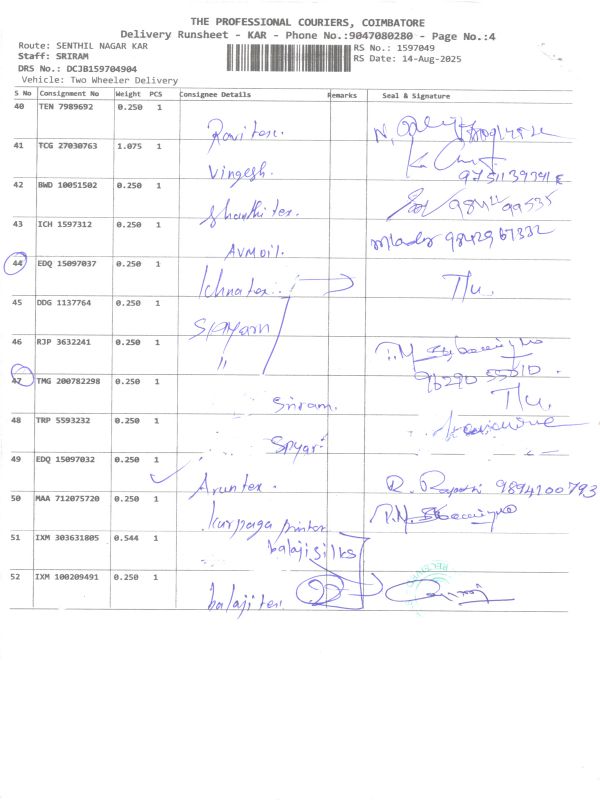 THE PROFESSIONAL COURIERS, COIMBATORE
Delivery Runsheet - KAR - Phone No.:9047080280 - Page No.:4
Route: SENTHIL NAGAR KAR
RS No.: 1597049
Staff: SRIRAM
RS Date: 14-Aug-2025
DRS No.: DCJB159704904
Vehicle: Two Wheeler Delivery
S No Consignment No Weight PCS Consignee Details Remarks Seal & Signature
40 TEN 7989692 0.250 1
Ravitex.
41 TCG 27030763 1.075 1
Vingesh.
42 BWD 10051502 0.250 1
Shanthi tex.
43 ICH 1597312 0.250 1
AVM oil.
44 EDQ 15097037 0.250 1
Ichnatex. Tlu,
45 DDG 1137764 0.250 1
46 RJP 3632241 0.250 1
"
47 TMG 200782298 0.250 1
Sriram. Tlu,
48 TRP 5593232 0.250 1
49 EDQ 15097032 0.250 1
Aruntex. 9894200793
50 MAA 712075720 0.250 1
karpaga printer
51 IXM 303631805 0.544 1
balaji silks
52 IXM 100209491 0.250 1
balaji tex.